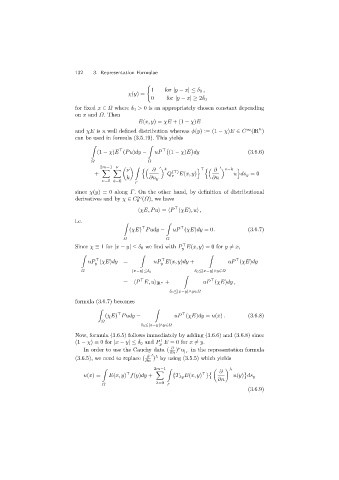 132 3. Representation Formulae
χ(y) = { 1 for |y − x| ≤ δ₀ ,
0 for |y − x| ≥ 2δ₀
for fixed x ∈ Ω where δ₀ > 0 is an appropriately chosen constant depending
on x and Ω. Then
E(x, y) = χE + (1 − χ)E
and χE is a well defined distribution whereas φ(y) := (1 − χ)E ∈ C^∞(ℝⁿ)
can be used in formula (3.5.19). This yields
∫_Ω (1 − χ)E^⊤(Pu)dy − ∫_Ω uP^⊤((1 − χ)E)dy (3.6.6)
since χ(y) = 0 along Γ. On the other hand, by definition of distributional
derivatives and by χ ∈ C₀^∞(Ω), we have
⟨χE, Pu⟩ = ⟨P^⊤(χE), u⟩ ,
i.e.
∫_Ω (χE)^⊤Pudy − ∫_Ω uP^⊤(χE)dy = 0 . (3.6.7)
Since χ ≡ 1 for |x − y| ≤ δ₀ we find with P_y^⊤E(x, y) = 0 for y ≠ x,
∫_Ω uP_y^⊤(χE)dy = ∫_{|x−y|≤δ₀} uP_y^⊤E(x, y)dy + ∫_{δ₀≤|x−y|∧y∈Ω} uP^⊤(χE)dy
= ⟨P^⊤E, u⟩_{ℝⁿ} + ∫_{δ₀≤|x−y|∧y∈Ω} uP^⊤(χE)dy ,
formula (3.6.7) becomes
∫_Ω (χE)^⊤Pudy − ∫_{δ₀≤|x−y|∧y∈Ω} uP^⊤(χE)dy = u(x) . (3.6.8)
Now, formula (3.6.5) follows immediately by adding (3.6.6) and (3.6.8) since
(1 − χ) = 0 for |x − y| ≤ δ₀ and P_y^⊤E = 0 for x ≠ y.
In order to use the Cauchy data in the representation formula
(3.6.5), we need to replace by using (3.5.5) which yields
u(x) = ∫_Ω E(x, y)^⊤f(y)dy + (3.6.9)